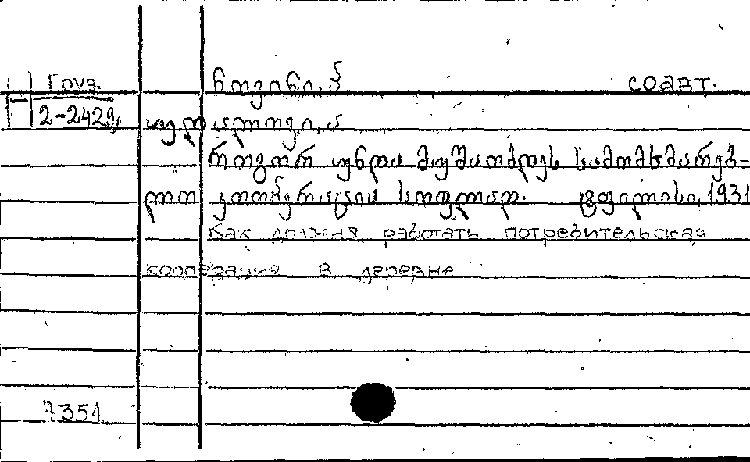 Груз.
соавт.
2-2429
როგორ უნდა მუშაობდეს სამომხმარებ-
ლო კოოპერაცია სოფლად. ტფილისი, 1931
Как должна работать потребительская
кооперация в деревне
7351